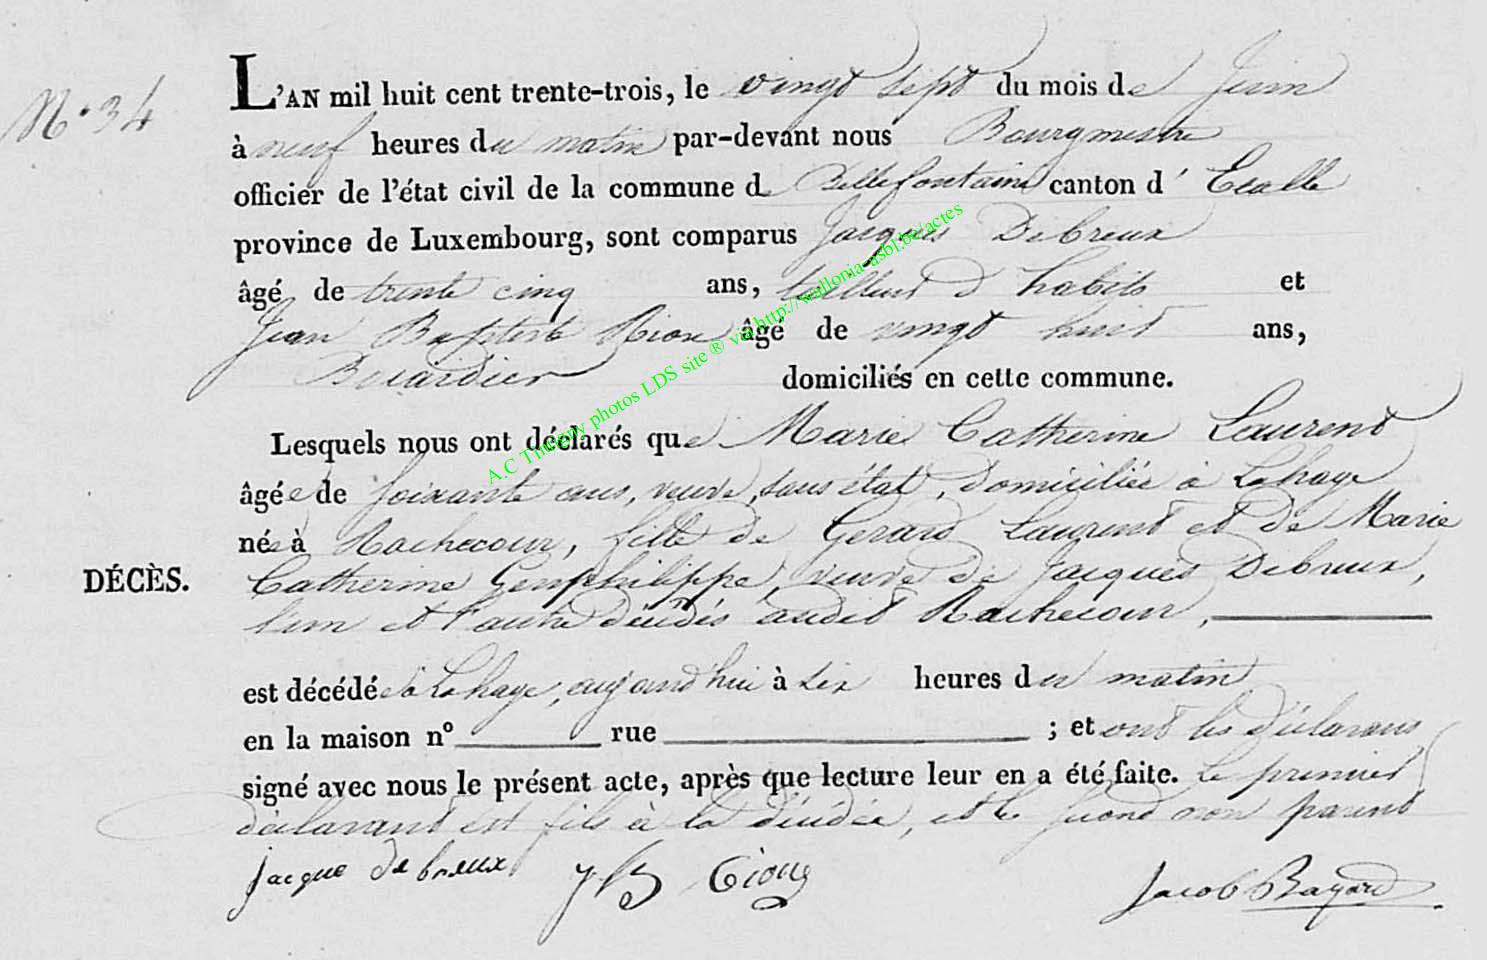 N° 34
L'AN mil huit cent trente-trois, le vingt sept du mois de Juin
à neuf heures du matin par-devant nous Bourgmestre
officier de l'état civil de la commune de Bellefontaine canton d' Etalle
province de Luxembourg, sont comparus Jacques Debreux
âgé de trente cinq ans, tailleur d'habits et
Jean Baptiste âgé de vingt huit ans,
domiciliés en cette commune.
Lesquels nous ont déclarés que Marie Catherine Laurent
âgée de soixante ans, veuve, sans état, domiciliée à Lahage
née à Rachecour, fille de Gerard Laurent et de Marie
Catherine Genphilippe, veuve de Jacques Debreux,
l'un et l'autre décédés audit Rachecour,
DÉCÈS.
est décédée à Lahage, aujourd'hui à six heures du matin
en la maison n° rue ; et ont les déclarans
signé avec nous le présent acte, après que lecture leur en a été faite. Le premier
déclarant est fils à la décédée, et le second non parent
Jacque debreux JB Jacob Bayard
A.C Tintigny photos LDS site ® via http://wallonia-asbl.be/actes